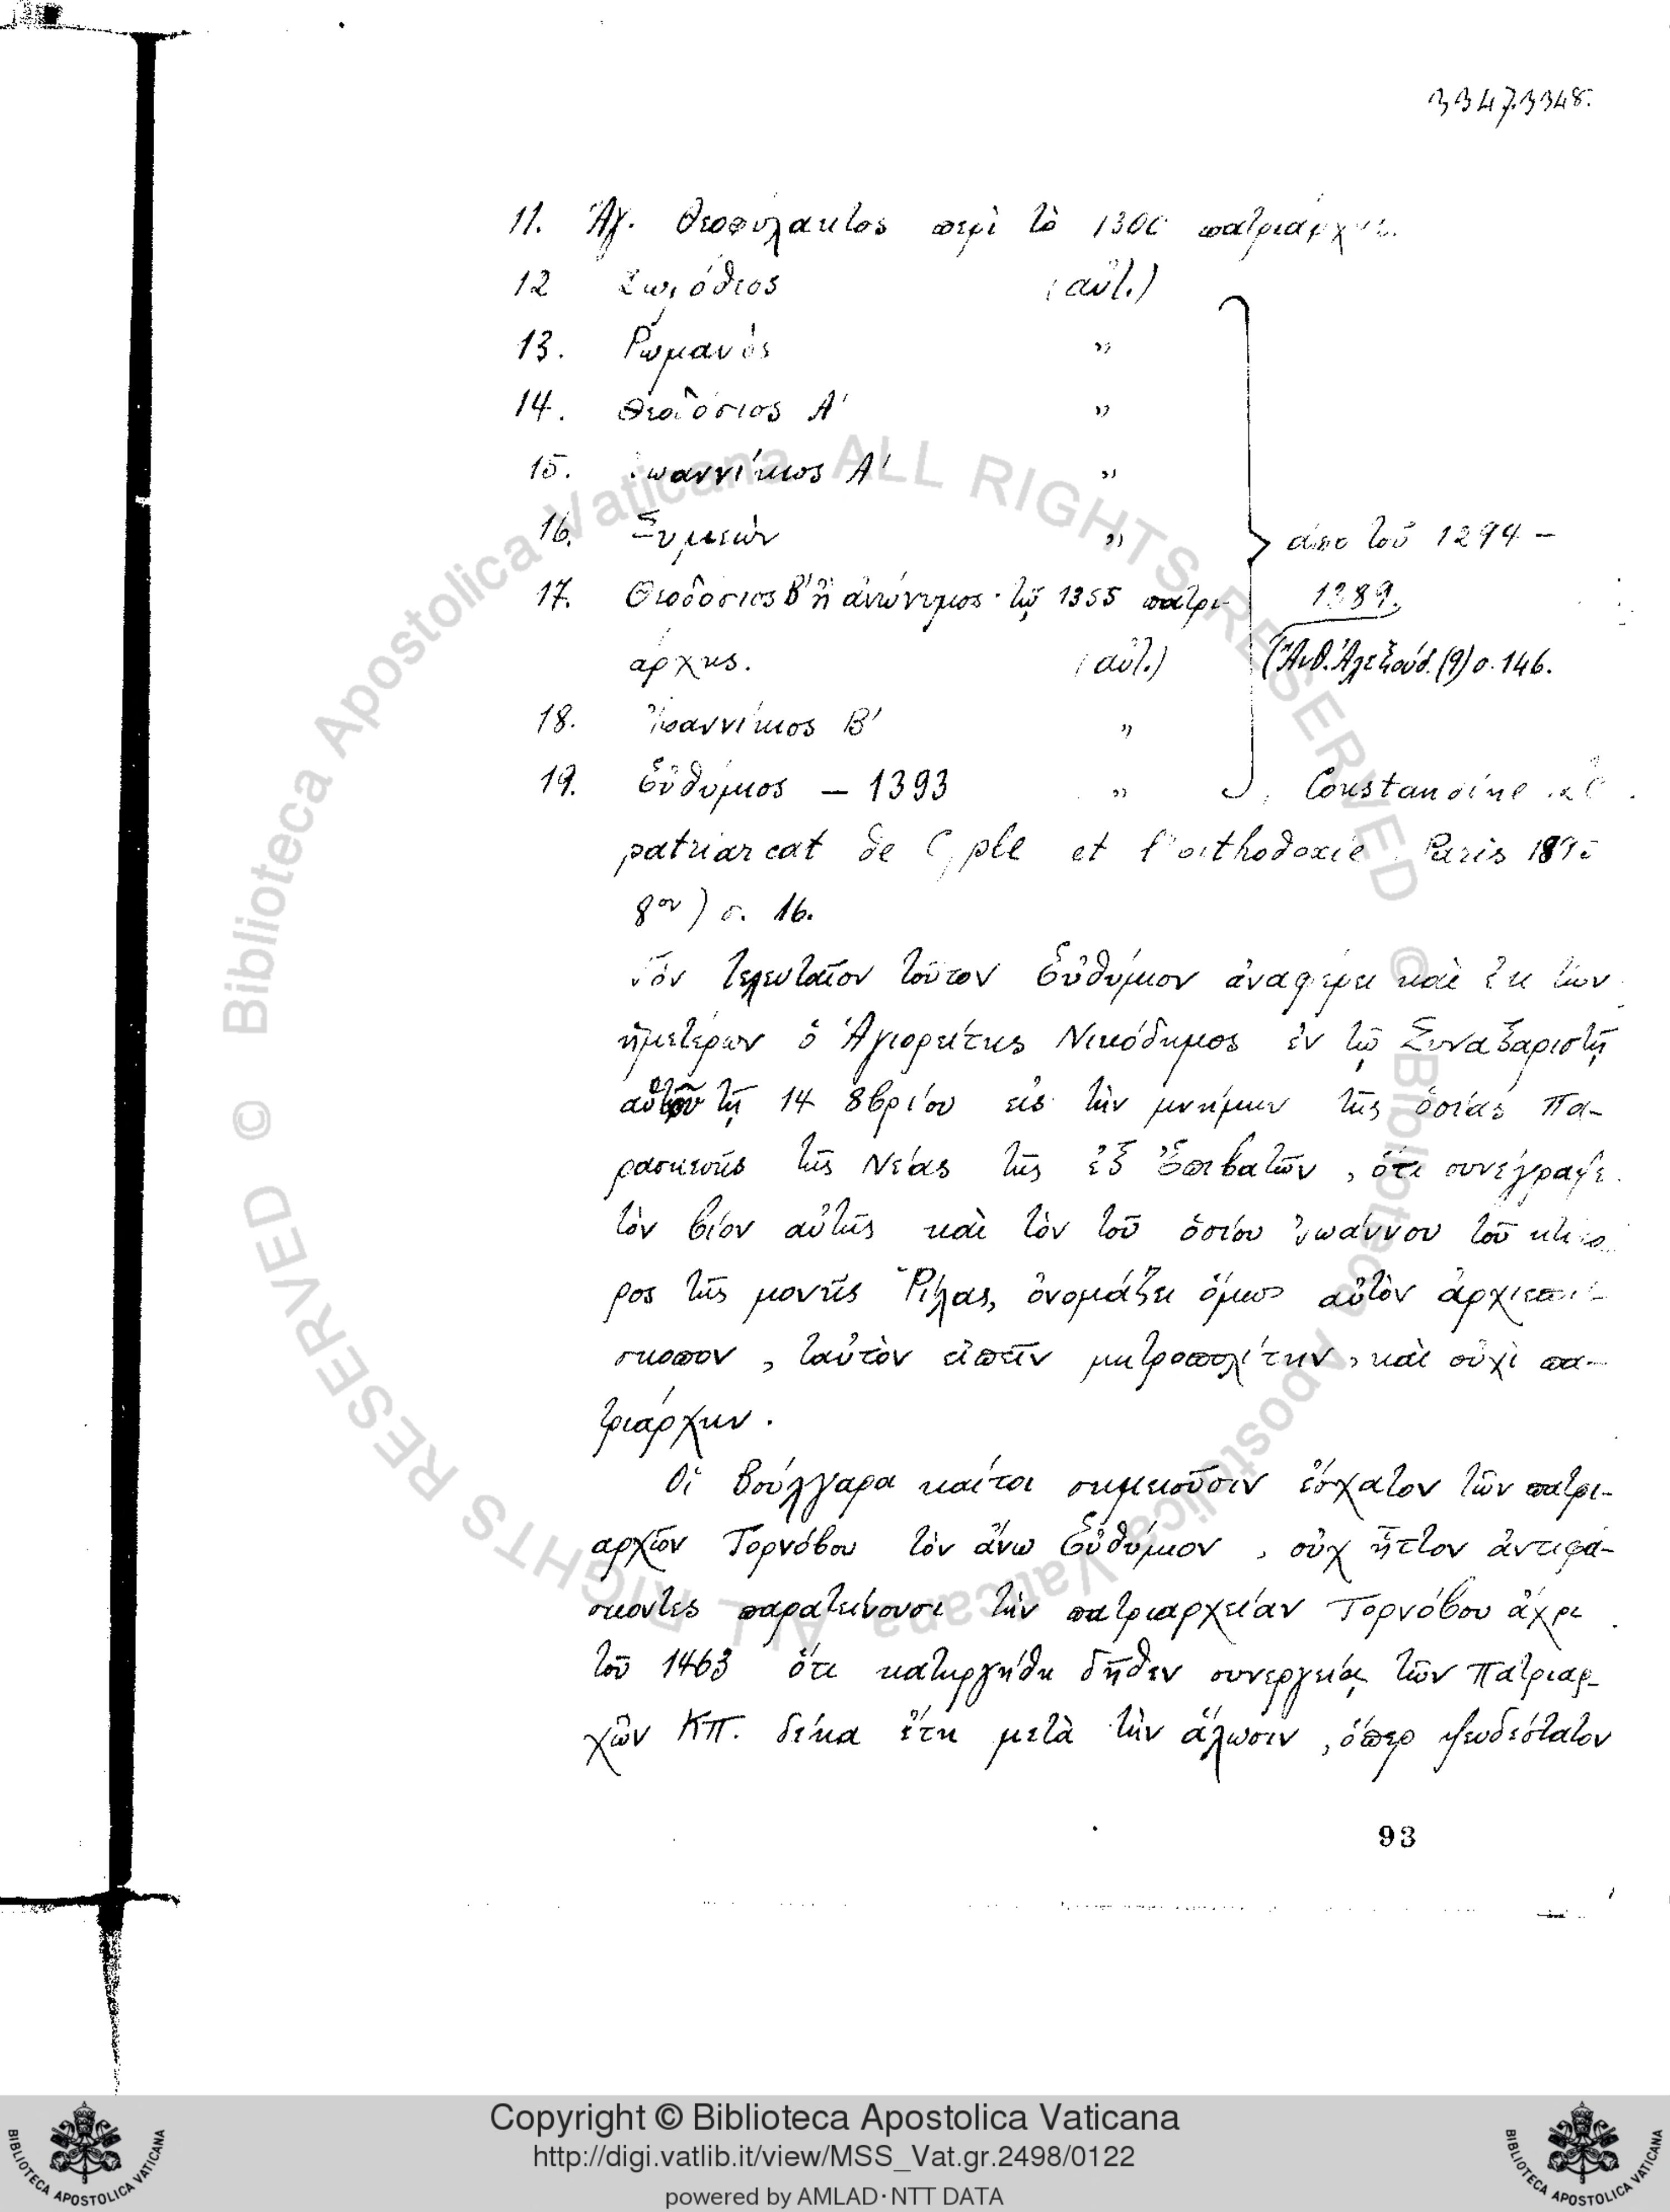 3347.3348.
11. Ἁγ. Θεοφύλακτος περὶ τὸ 1300 πατριάρχης.
12 Σωζόθιος (αὐτ.)
13. Ρωμανός "
14. Θεοδόσιος Α' "
15. Ἰωαννίκιος Α' "
16. Συμεών " ἀπο τοῦ 1294 –
17. Θεοδόσιος Β' ἢ ἀνώνυμος· τῷ 1355 πατρι- 1389.
άρχης. (αὐτ.) (Ἄνθ. Ἀλεξούδ. (9) σ. 146.
18. Ἰωαννίκιος Β' "
19. Εὐθύμιος – 1393 " Constandine
patriarcat de C,ple et l'orthodoxie. Paris
8ον) σ. 16.
Τόν τελευταῖον τοῦτον Εὐθύμιον ἀναφέρει καὶ ἐκ τῶν
ἡμετέρων ὁ Ἁγιορείτης Νικόδημος ἐν τῷ Συναξαριστῇ
αὐτοῦ τῇ 14 8βρίου εἰς τὴν μνήμην τῆς ὁσίας Πα-
ρασκευῆς τῆς Νέας τῆς ἐξ Ἐπιβατῶν, ὅτι συνέγραψε
τὸν βίον αὐτῆς καὶ τὸν τοῦ ὁσίου Ἰωάννου τοῦ κτίτο
ρος τῆς μονῆς Ῥίλας, ὀνομάζει ὅμως αὐτὸν ἀρχιεπί-
σκοπον, ταὐτὸν εἰπεῖν μητροπολίτην, καὶ οὐχὶ πα-
τριάρχην.
Οἱ Βούλγαρα καίτοι σημειοῦσιν ἔσχατον τῶν πατρι-
αρχῶν Τορνόβου τὸν ἄνω Εὐθύμιον, οὐχ ἧττον ἀντιφά-
σκοντες παρατείνουσι τὴν πατριαρχείαν Τορνόβου ἄχρι
τοῦ 1463 ὅτε κατηργήθη δῆθεν συνεργείᾳ τῶν Πατριαρ-
χῶν ΚΠ. δέκα ἔτη μετὰ τὴν ἅλωσιν, ὅπερ ψευδέστατον
93
© Biblioteca Apostolica Vaticana ALL RIGHTS RESERVED
© Biblioteca Apostolica Vaticana ALL RIGHTS RESERVED
Copyright © Biblioteca Apostolica Vaticana
http://digi.vatlib.it/view/MSS_Vat.gr.2498/0122
powered by AMLAD·NTT DATA
BIBLIOTECA APOSTOLICA VATICANA
BIBLIOTECA APOSTOLICA VATICANA